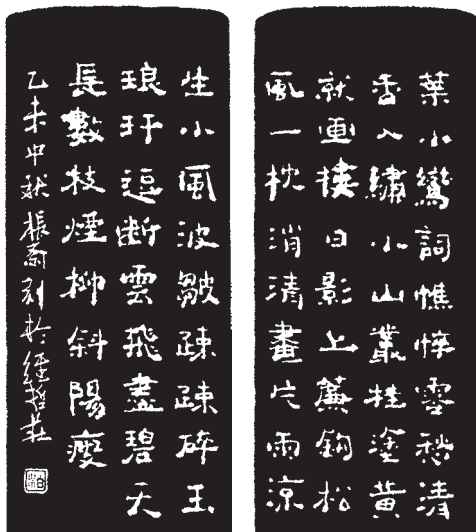 葉小鸞詞憔悴零愁清
香入繡小山叢桂塗黃
就画樓日影上簾鉤松
風一枕消清晝片雨涼
生小風波皺疎疎碎玉
琅玕逗斷雲飛盡碧天
長數枝煙柳斜陽瘦
乙未中秋振齋刻於經哲莊